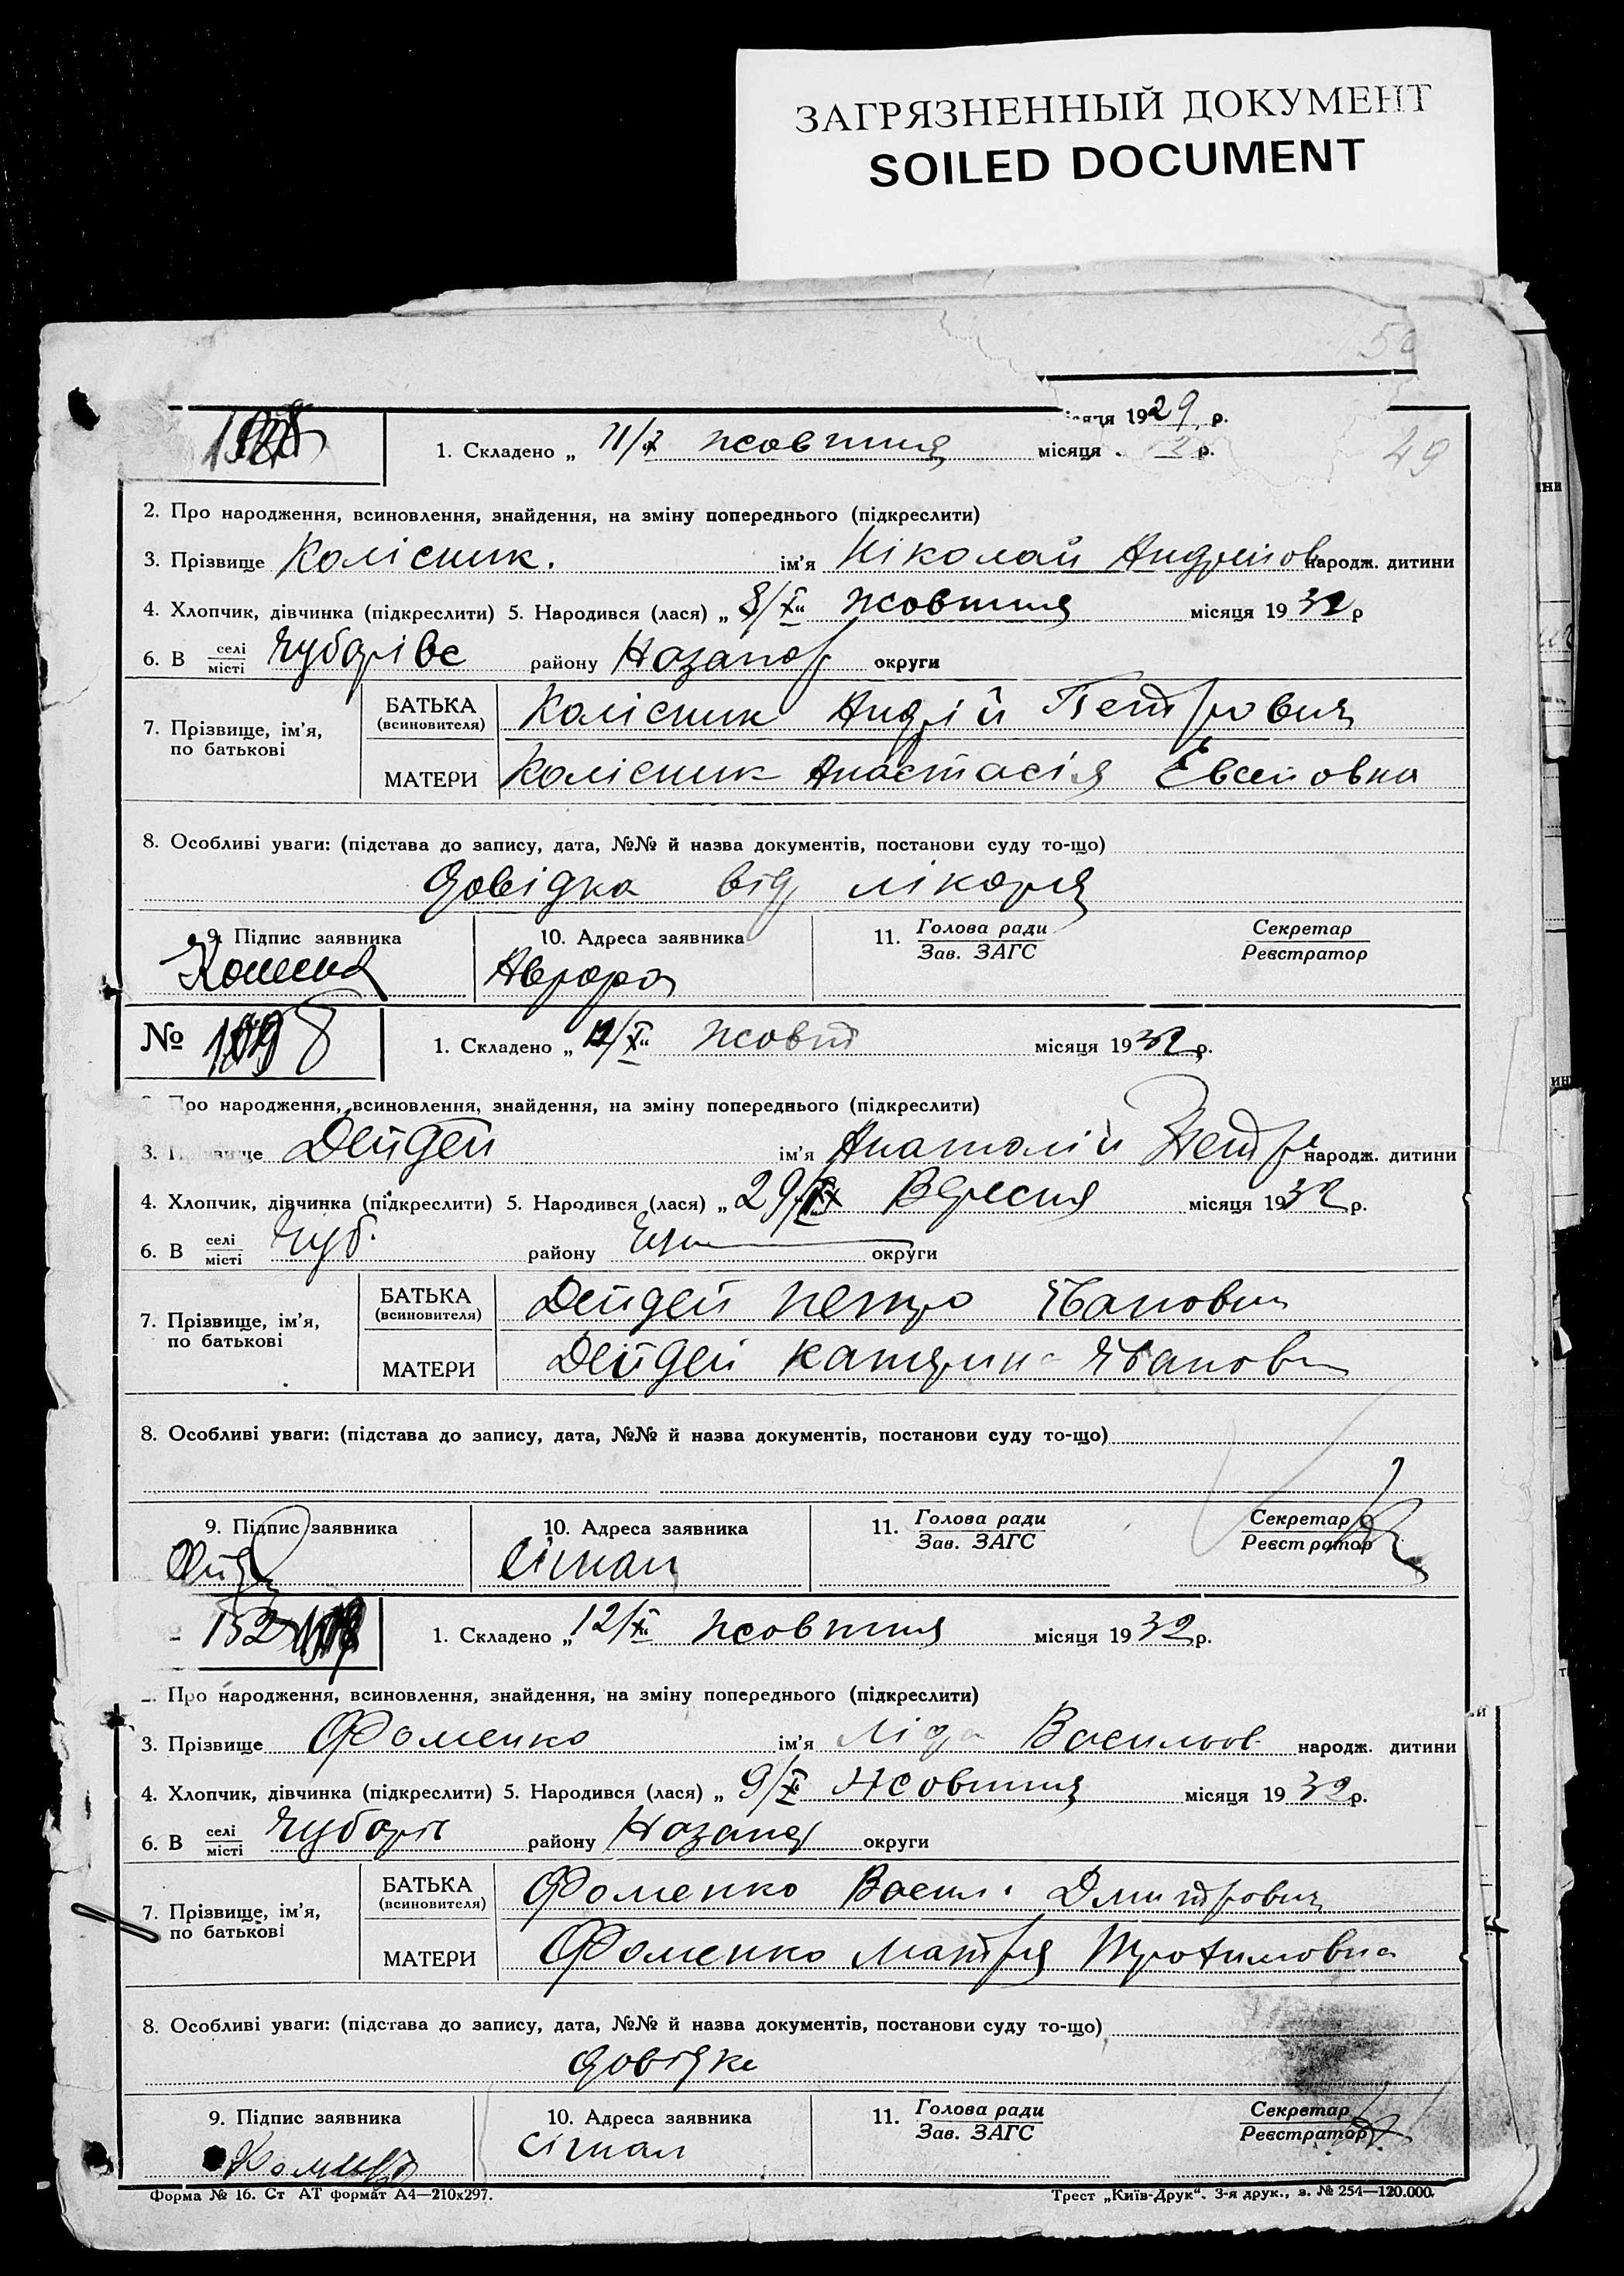 ЗАГРЯЗНЕННЫЙ ДОКУМЕНТ
SOILED DOCUMENT
місяця 1929 р.
49
1. Складено „ 11/X жовтня місяця р.
2. Про народження, всиновлення, знайдення, на зміну попереднього (підкреслити)
3. Прізвище Колісник. ім'я Ніколай Андрійов народж. дитини
4. Хлопчик, дівчинка (підкреслити) 5. Народився (лася) „ 8/X “ жовтня місяця 1932 р
6. В селі/місті Чубарівс району округи
7. Прізвище, ім'я, по батькові
БАТЬКА (всиновителя) Колісник Андрій Петрович
МАТЕРИ Колісник Анастасія Евсеиовна
8. Особливі уваги: (підстава до запису, дата, №№ й назва документів, постанови суду то-що)
довідка від лікаря
9. Підпис заявника 10. Адреса заявника 11. Голова ради/Зав. ЗАГС Секретар/Реєстратор
Аврора
№ 1. Складено „ 12/X “ жовт місяця 1932 р.
Про народження, всиновлення, знайдення, на зміну попереднього (підкреслити)
3. Дейдей ім'я Анатолій Петр народж. дитини
4. Хлопчик, дівчинка (підкреслити) 5. Народився (лася) „ 29/IX Вересня місяця 1932 р.
6. В селі/місті Чуб. району округи
7. Прізвище, ім'я, по батькові
БАТЬКА (всиновителя) Дейдей Петро Іванович
МАТЕРИ Дейдей Катерина Іванов
8. Особливі уваги: (підстава до запису, дата, №№ й назва документів, постанови суду то-що)
9. Підпис заявника 10. Адреса заявника 11. Голова ради/Зав. ЗАГС Секретар/Реєстратор
Сігнал
152 1. Складено „ 12/X “ жовтня місяця 1932 р.
Про народження, всиновлення, знайдення, на зміну попереднього (підкреслити)
3. Прізвище Фоменко ім'я Ліда Васильов народж. дитини
4. Хлопчик, дівчинка (підкреслити) 5. Народився (лася) „ 9/X “ Жовтня місяця 1932 р.
6. В селі/місті Чубарів району округи
7. Прізвище, ім'я, по батькові
БАТЬКА (всиновителя) Фоменко Васил Дмитрович
МАТЕРИ Фоменко Мотря Трохимовна
8. Особливі уваги: (підстава до запису, дата, №№ й назва документів, постанови суду то-що)
довідка
9. Підпис заявника 10. Адреса заявника 11. Голова ради/Зав. ЗАГС Секретар/Реєстратор
Сігнал
Форма № 16. Ст АТ формат А4—210х297. Трест „Київ-Друк“. 3-я друк., з. № 254—120.000.